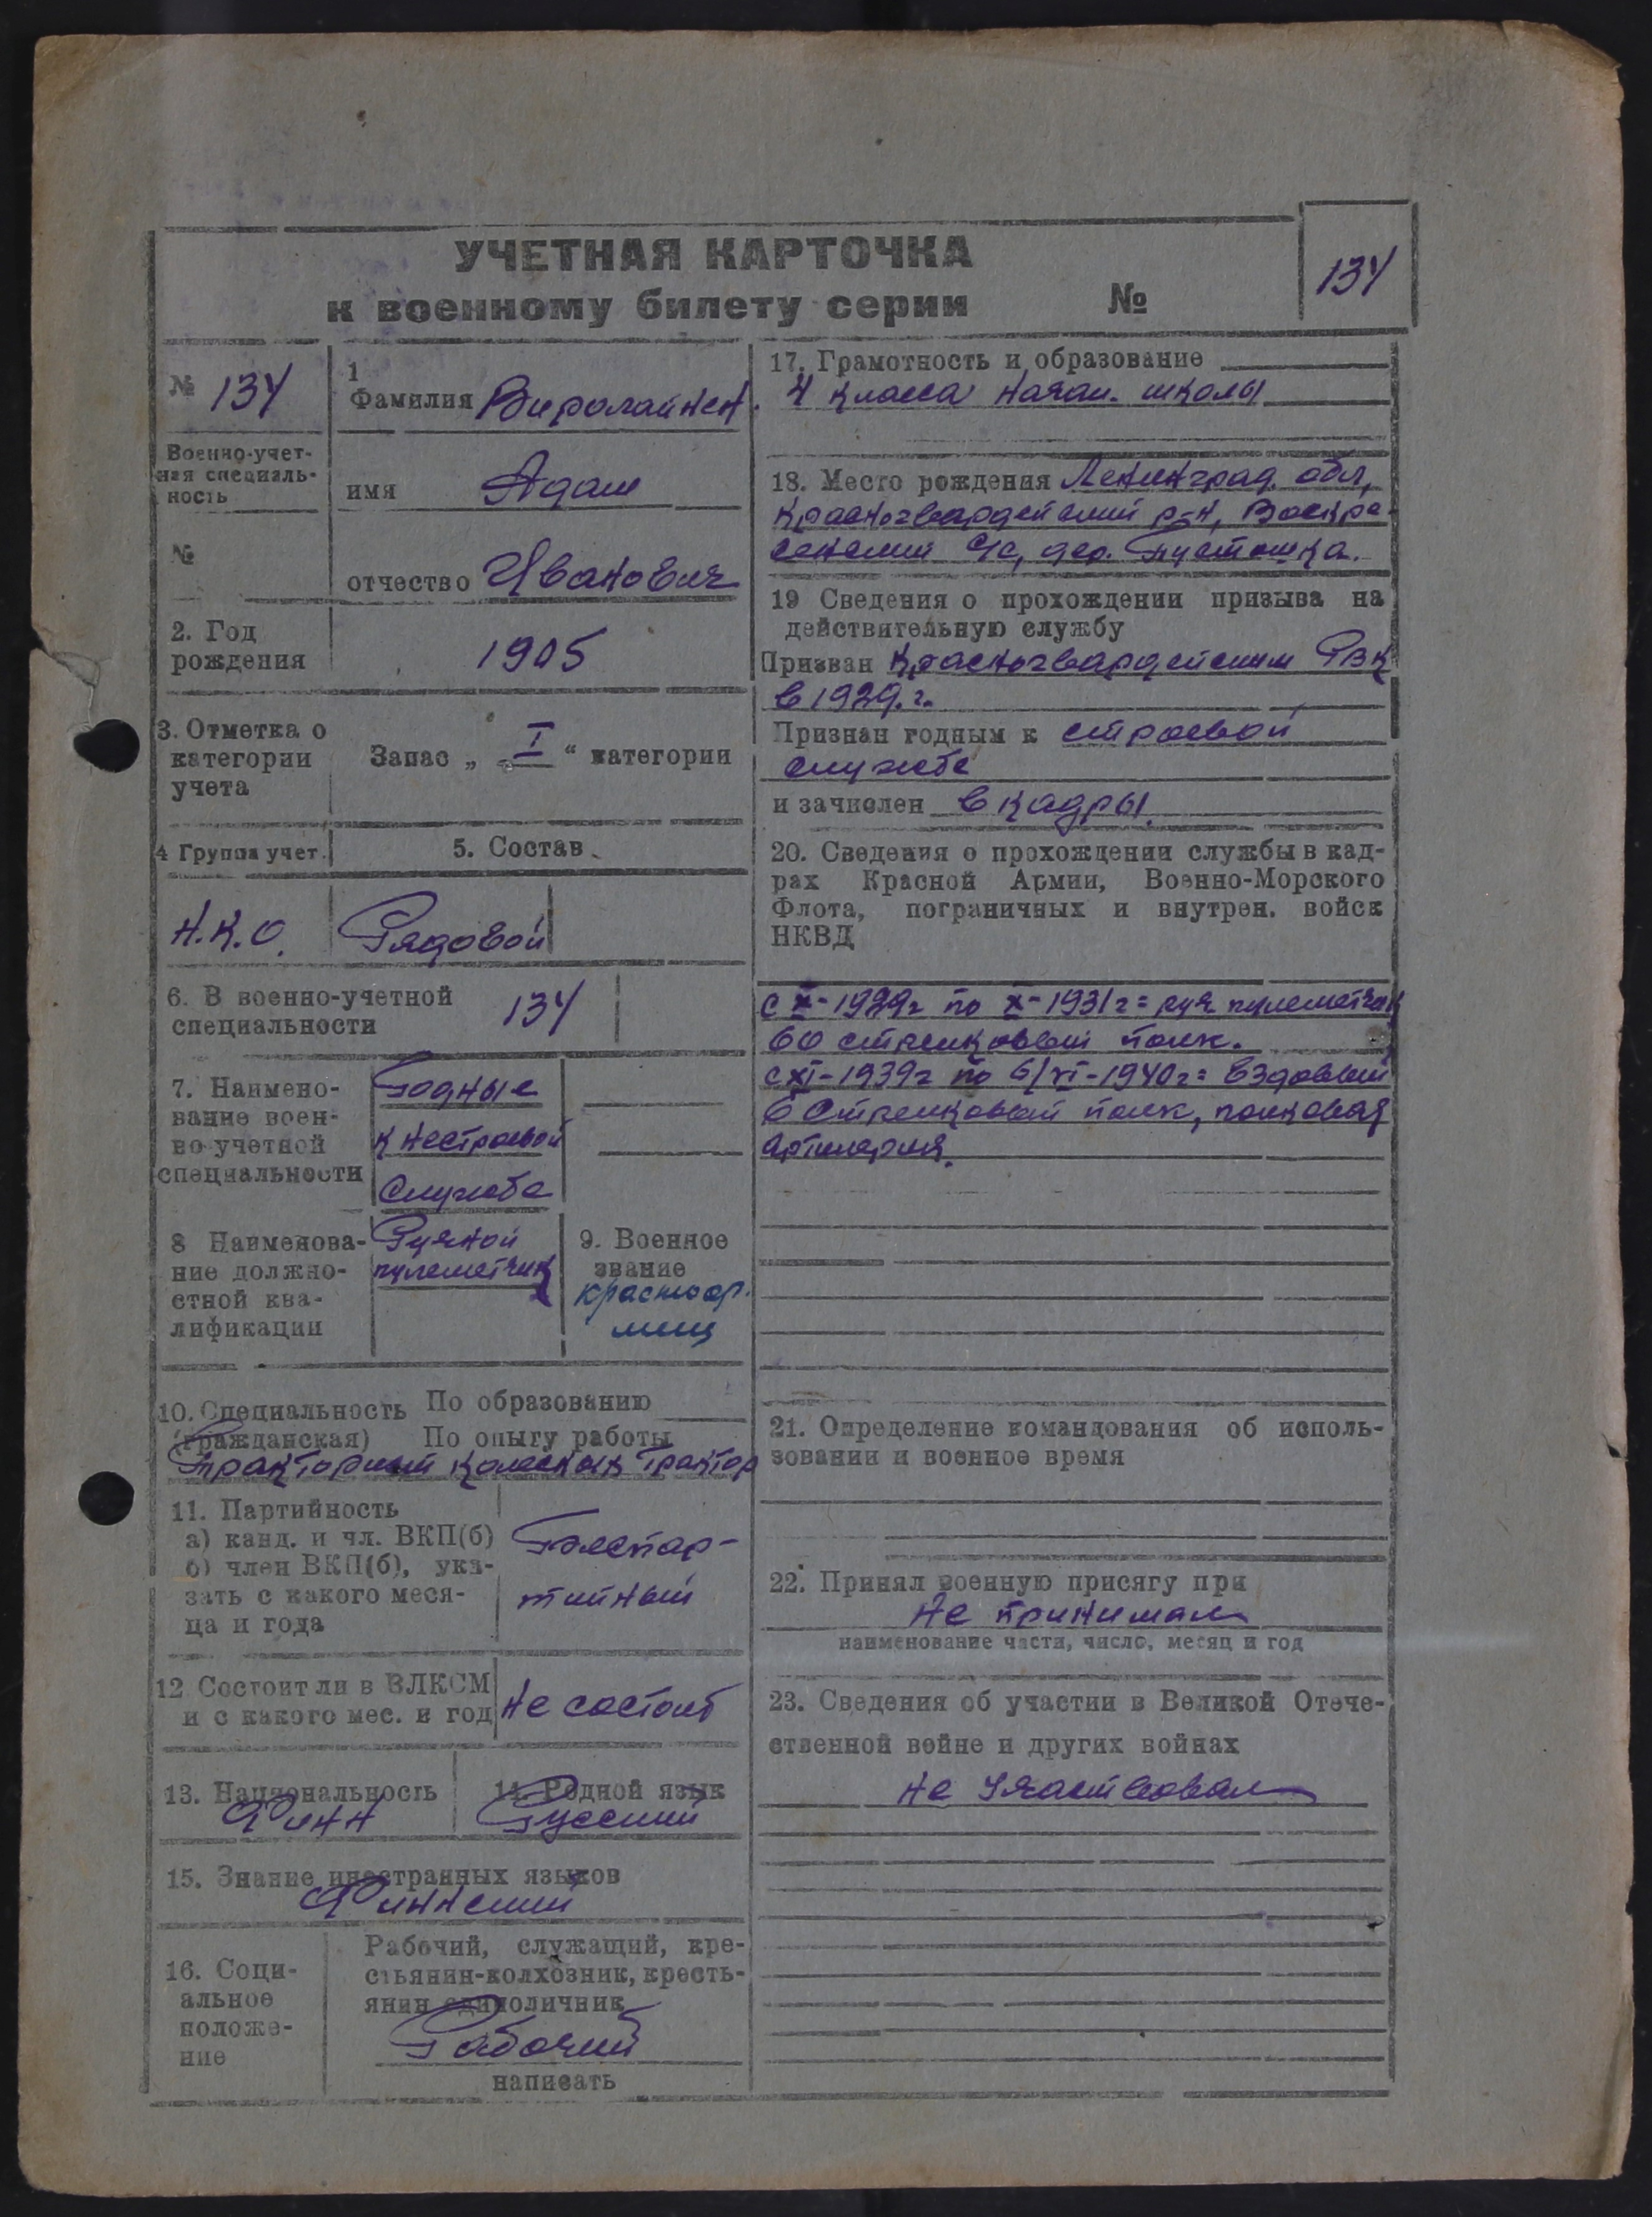 УЧЕТНАЯ КАРТОЧКА
к военному билету серии №
134
№ 134
1
Фамилия Виролайнен.
Военно-учет-
ная специаль-
ность
имя Адам
№
отчество Иванович
2. Год
рождения
1905
3. Отметка о
категории
учета
Запас „ I “ категории
4 Группа учет.
5. Состав
Н.К.О.
Рядовой
6. В военно-учетной
специальности
134
7. Наимено-
вание воен-
но-учетной
специальности
Годные
к нестроевой
службе
8 Наименова-
ние должно-
стной ква-
лификации
Ручной
пулеметчик
9. Военное
звание
красноар.
меец
10. Специальность По образованию
(гражданская) По опыту работы
тракторист колесных трактор
11. Партийность
а) канд. и чл. ВКП(б)
б) член ВКП(б), ука-
зать с какого меся-
ца и года
Беспар-
тийный
12 Состоит ли в ВЛКСМ
и с какого мес. и год
Не состоит
13. Национальность
Финн
14. Родной язык
Русский
15. Знание иностранных языков
Финнский
16. Соци-
альное
положе-
ние
Рабочий, служащий, кре-
стьянин-колхозник, кресть-
янин единоличник
Рабочий
написать
17. Грамотность и образование
4 класса начал. школы
18. Место рождения Ленинград. обл,
Красногвардейский р-н, Воскре-
сенский с/с, дер. Пустошка.
19 Сведения о прохождении призыва на
действительную службу
Призван Красногвардейским РВК
в 1929.г.
Признан годным к строевой
службе
и зачислен в кадры.
20. Сведения о прохождении службы в кад-
рах Красной Армии, Военно-Морского
Флота, пограничных и внутрен. войск
НКВД
с X-1929г по X-1931г= руч пулеметчик
60 стрелковый полк.
с XI-1939г по 6/VI-1940г= ездовый
6 Стрелковый полк, полковая
артилерия.
21. Определение командования об исполь-
зовании и военное время
22. Принял военную присягу при
не принимал
наименование части, число, месяц и год
23. Сведения об участии в Великой Отече-
ственной войне и других войнах
не участвовал